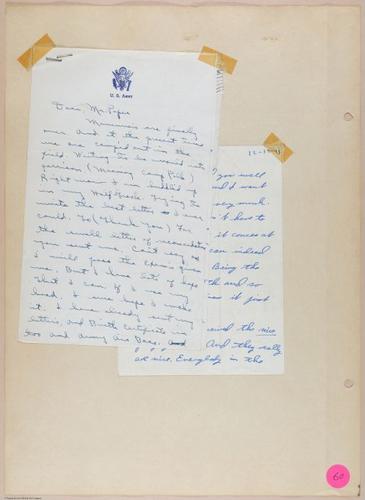 U. S. ARMY
Dear Mr. Pope
Maneuvers are finally
over. And at the present time
we are camped out in the
field. Waiting to be moved into
garrison (Meaning Camp Polk)
Right now I am huddled up
in my Half-Shelter. Trying to
write the best letter as I ever
could. To (Thank you) For
the swell letter of
you sent me. Can't say as
I will pass the Exams given
me. But I have lots of hope
that I can. If I use my
head. I sure hope I make
it. I have already sent my
letters, and Birth Certificate in
too and
12-1
you well
I'd want
very much.
't have to
it comes at
can indeed
Being the
th and so
it just
and the nice
And they really
are nice. Everybody in the
60